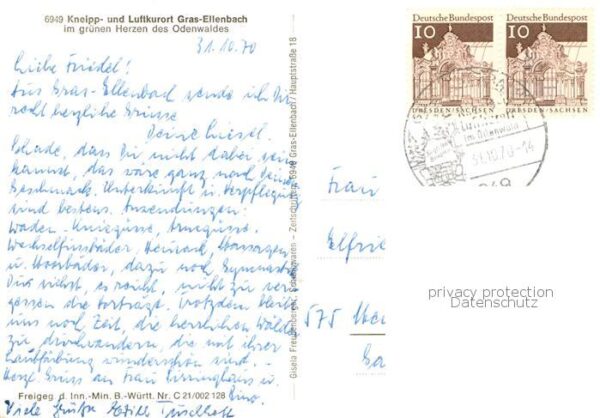 6949 Kneipp- und Luftkurort Gras-Ellenbach
im grünen Herzen des Odenwaldes
31.10.70
Liebe Friedel!
Aus Gras-Ellenbach sende ich Dir
recht herzliche Grüsse
Deine Liesel.
Schade, dass Du nicht dabei sein
kannst, das wäre ganz nach Deinem
Geschmack. Unterkunft u. Verpflegung
sind bestens. Anwendungen:
Waden- Kniegüsse, Armgüsse.
Wechselfussbäder, Heusack,
u. Moorbäder, dazu noch Gymnastik
Du siehst, es reicht, nicht zu ver-
gessen die Vorträge. Trotzdem bleibt
uns noch Zeit, die herrlichen Wälder
zu durchwandern, die mit ihrer
Laubfärbung wunderschön sind.
Herzl. Gruss an Frau
Freigeg. d. Inn.-Min. B.-Württ. Nr. C 21/002 128
Viele Grüße
Gisela Freudenberger, Schreibwaren – Zeitschriften, 6949 Gras-Ellenbach, Hauptstraße 18
Deutsche Bundespost
10
DRESDEN-SACHSEN
Deutsche Bundespost
10
DRESDEN-SACHSEN
im Odenwald
31.10.70-14
Frau
Elfrie
575
privacy protection
Datenschutz